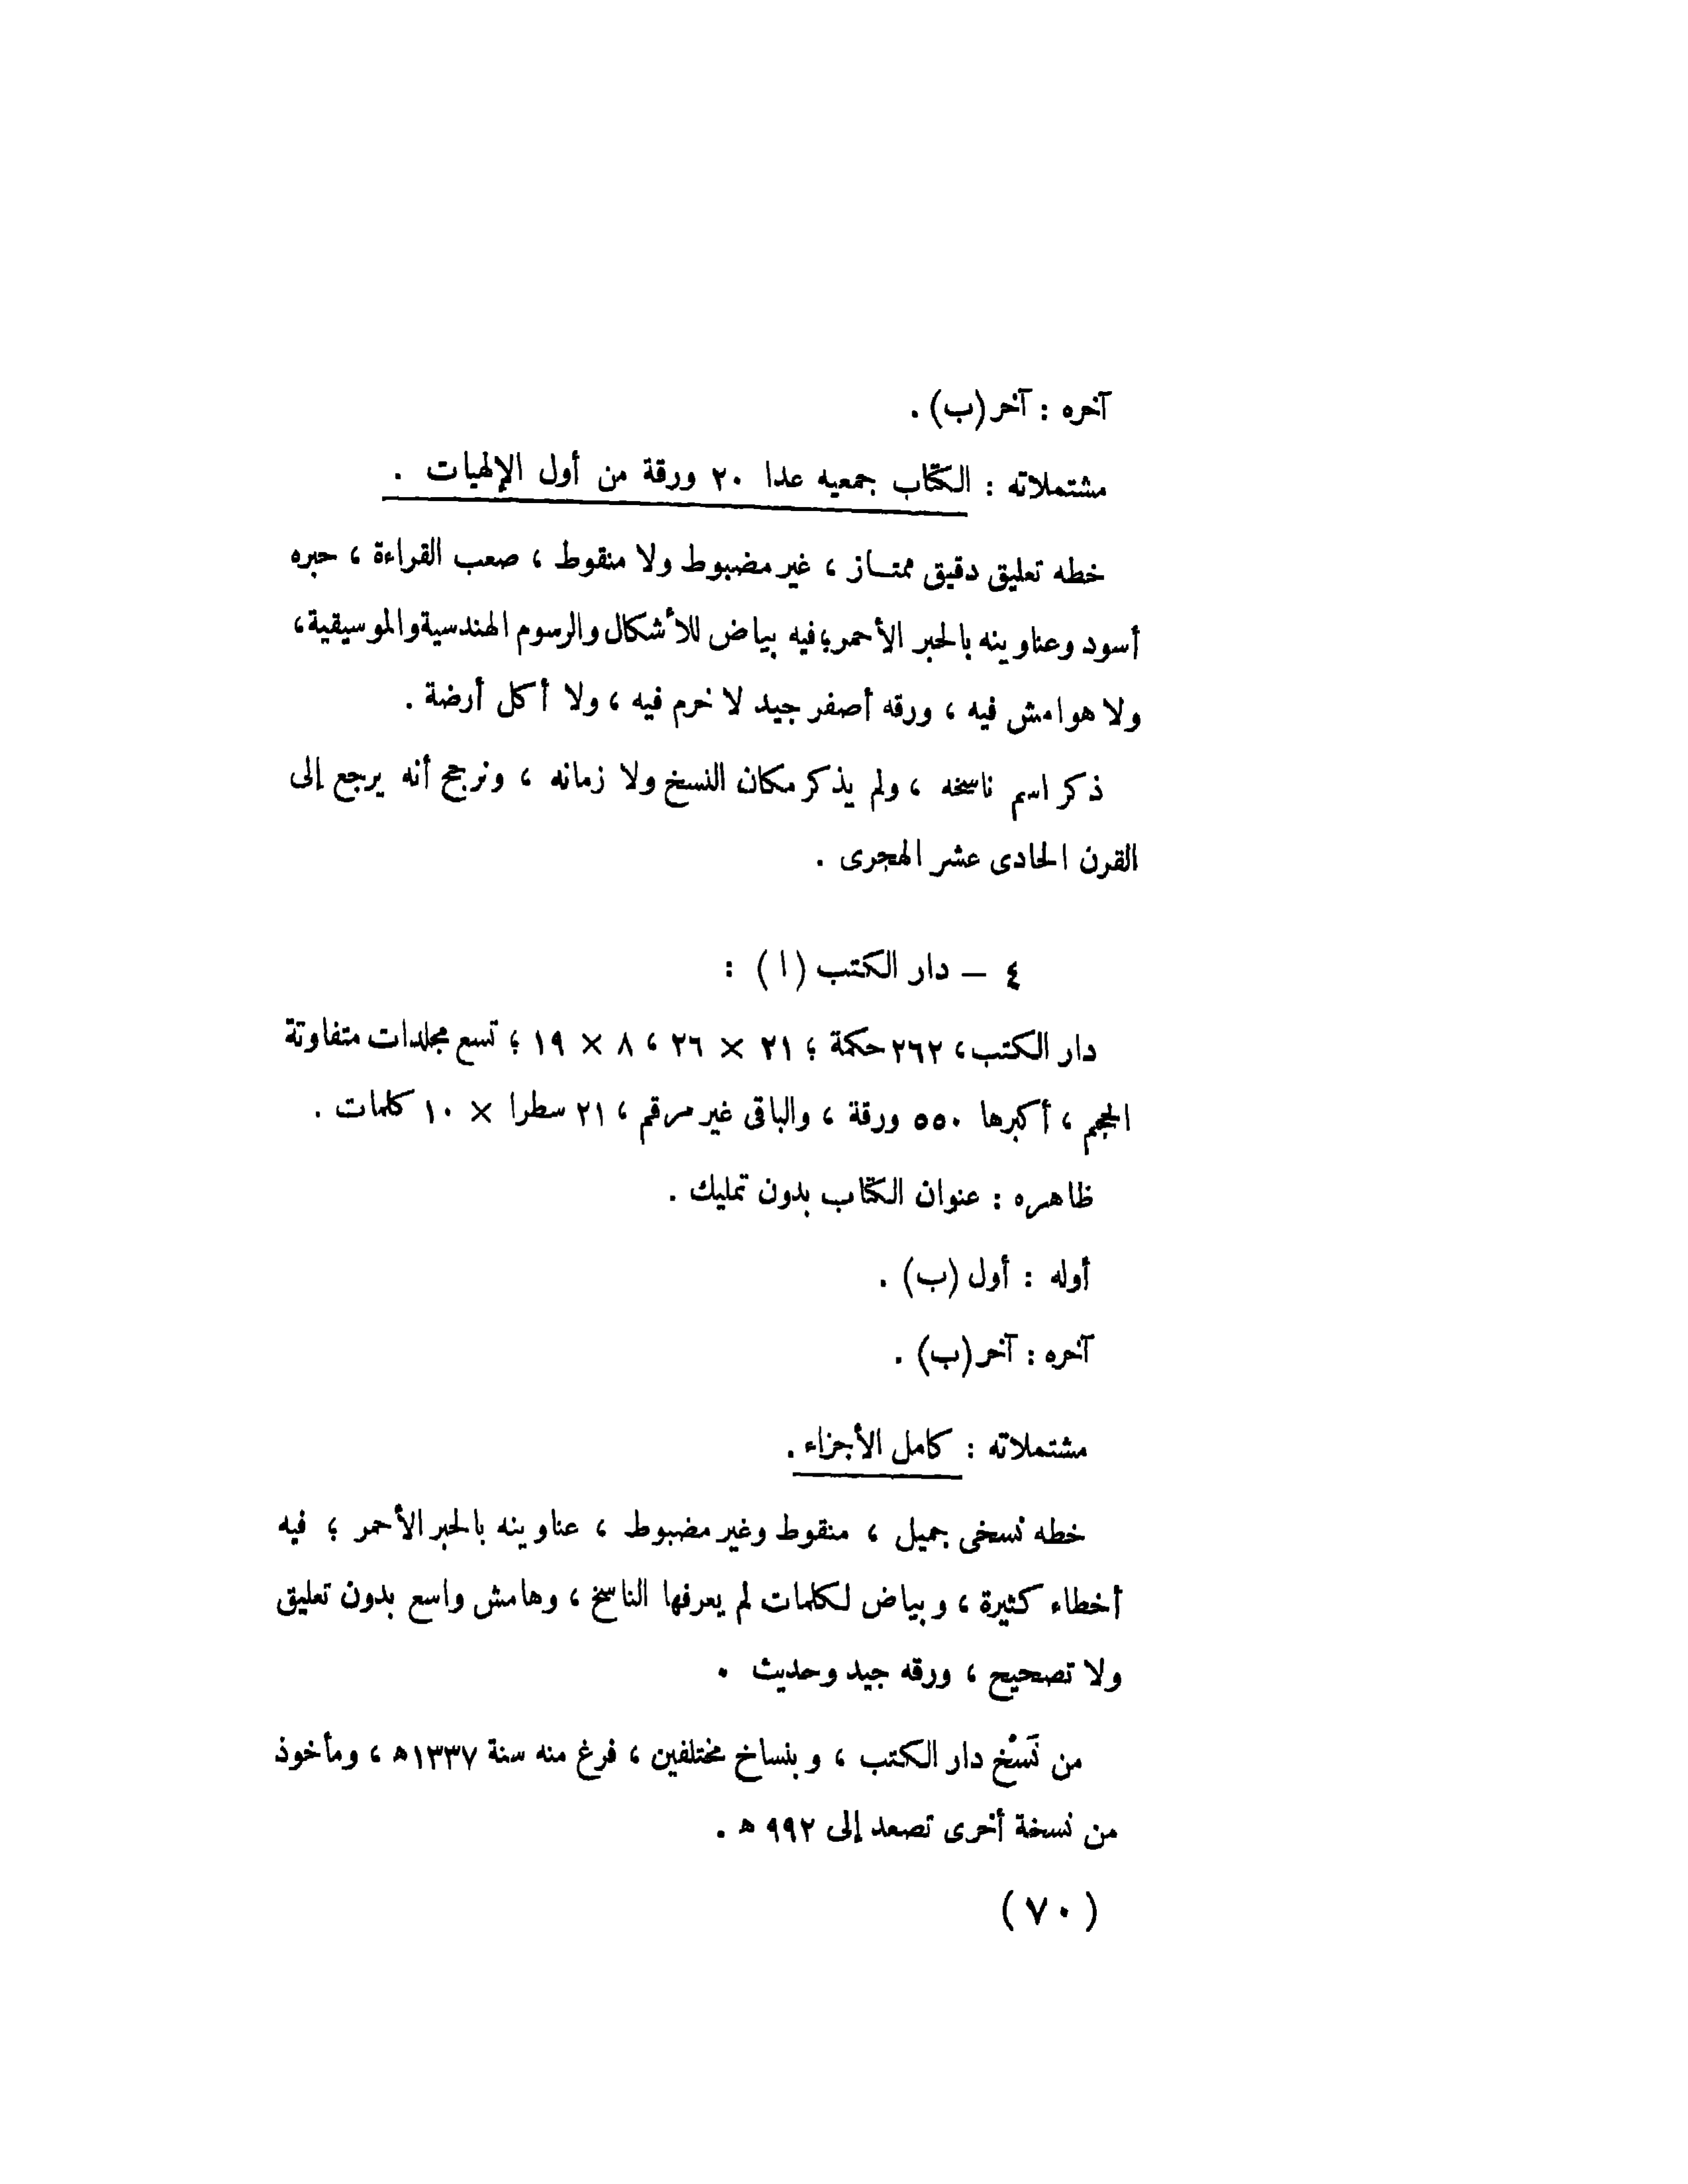 آخره : آخر (ب) .
مشتملاته : الكتاب جمعيه عدا ٢٠ ورقة من أول الإلهيات .
خطه تعليق دقيق ممتاز ، غير مضبوط ولا منقوط ، صعب القراءة ، حبره
أسود وعناوينه بالحبر الأحمر؛ فيه بياض للأشكال والرسوم الهندسية والموسيقية،
ولا هوامش فيه ، ورقه أصفر جيد لا خرم فيه ، ولا أكل أرضة .
ذكر اسم ناسخه ، ولم يذكر مكان النسخ ولا زمانه ، ونرجح أنه يرجع إلى
القرن الحادى عشر الهجرى .
٤ — دار الكتب (ا) :
دار الكتب، ٢٦٢ حكمة ؛ ٢١ × ٢٦ ، ٨ × ١٩ ؛ تسع مجلدات متفاوتة
الحجم ، أكبرها ٥٥٠ ورقة ، والباقى غير مرقم ، ٢١ سطرا × ١٠ كلمات .
ظاهره : عنوان الكتاب بدون تمليك .
أوله : أول (ب) .
آخره : آخر (ب) .
مشتملاته : كامل الأجزاء .
خطه نسخى جميل ، منقوط وغير مضبوط ، عناوينه بالحبر الأحمر ؛ فيه
أخطاء كثيرة ، وبياض لكلمات لم يعرفها الناسخ ، وهامش واسع بدون تعليق
ولا تصحيح ، ورقه جيد وحديث .
من نَسْخ دار الكتب ، وبنساخ مختلفين ، فرغ منه سنة ١٣٣٧ه ، ومأخوذ
من نسخة أخرى تصعد إلى ٩٩٢ ه .
(٧٠)